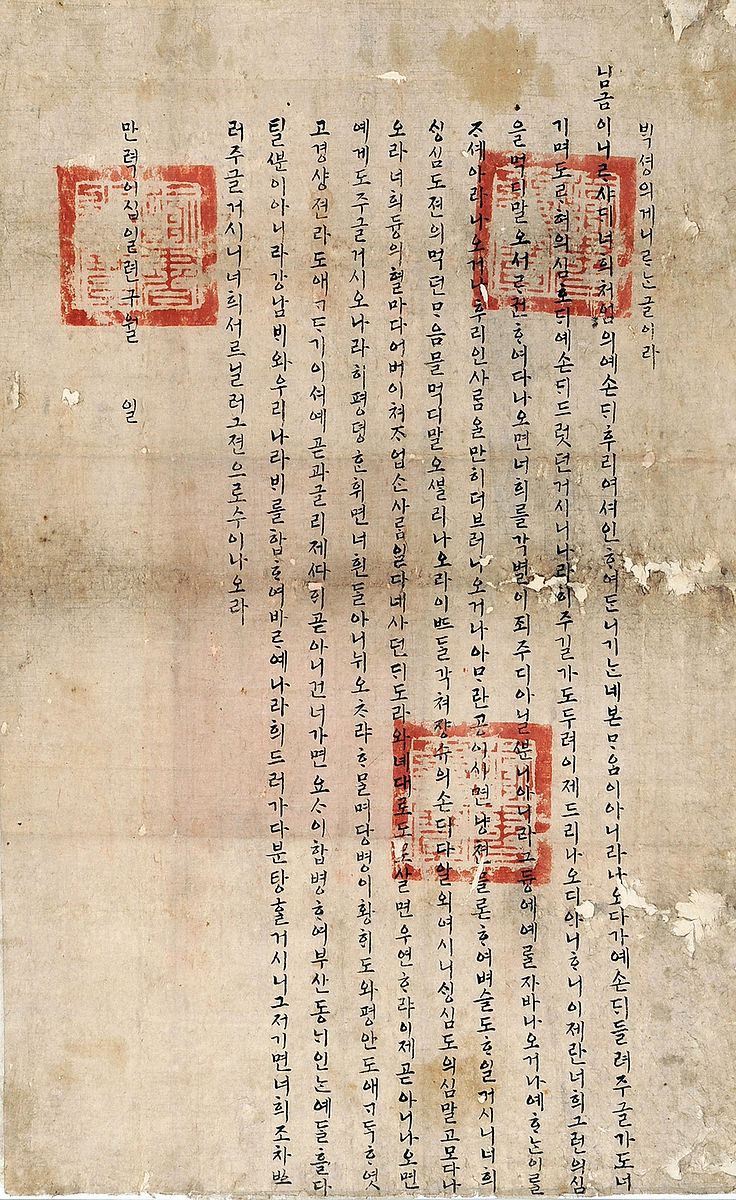 ᄇᆡᆨ셩의게니ᄅᆞᄂᆞᆫ글이라
님금이니ᄅᆞ샤ᄃᆡ너희처엄의예손ᄃᆡ후리여셔인ᄒᆞ여ᄃᆞᆫ니기ᄂᆞᆫ네본ᄆᆞᄋᆞᆷ이아니라나오다가예손ᄃᆡ들려주글가도너
기며도ᄅᆞ혀의심ᄒᆞᄃᆡ예손ᄃᆡ드럿던거시니나라히주길가도두려이제드리나오디아니ᄒᆞ니이제란너희그런의심
을먹디말오서ᄅᆞ권ᄒᆞ여다나오면너희를각별이죄주디아닐ᄲᅮᆫ니아니라그듕에예ᄅᆞᆯ자바나오거나예ᄒᆞᄂᆞᆫ이ᄅᆞᆯ
ᄌᆞ셰아라나오거나후리인사ᄅᆞᆷ을만히더브러나오거나아ᄆᆞ란공이시면냥쳔믈론ᄒᆞ여벼슬도ᄒᆞ일거시니너희
ᄉᆡᆼ심도젼의먹던ᄆᆞᄋᆞᆷ믈먹디말오ᄲᆞᆯ리나오라이ᄠᅳ들각쳐쟝슈의손ᄃᆡ다알외여시니ᄉᆡᆼ심도의심말고모다나
오라너희듕의혈마다어버이쳐ᄌᆞ업슨사ᄅᆞᆷ일다네사던ᄃᆡ도라와녜대로도로살면우연ᄒᆞ랴이제곧아니나오면
예게도주글거시오나라히평뎡ᄒᆞᆫ휘면너흰ᄃᆞᆯ아니뉘오ᄎᆞ랴ᄒᆞᄆᆞᆯ며당병이황ᄒᆡ도와평안도애ᄀᆞᄃᆞᆨᄒᆞ엿
고경샹젼라도애ᄀᆞᄃᆞ기이셔예곧과글리제ᄯᅡᄒᆡ곧아니건너가면요ᄉᆞ이합병ᄒᆞ여부산동ᄂᆡ인ᄂᆞᆫ예ᄃᆞᆯ흘다
틸ᄲᅮᆫ이아니라강남ᄇᆡ와우리나라ᄇᆡ를합ᄒᆞ여바ᄅᆞ예나라희드러가다분탕ᄒᆞᆯ거시니그저기면너희조차ᄡᅳ
러주글거시니너희서ᄅᆞ닐러그젼으로수이나오라
만력이십일년구월 일